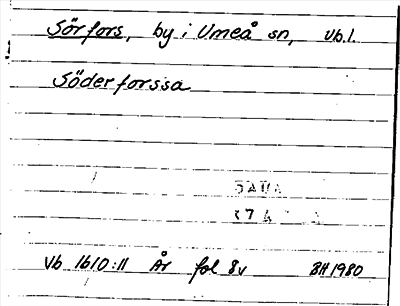 Sörfors, by i Umeå sn, Vb l.
Söderforssa
Vb 1610:11 År fol 8v BH 1980